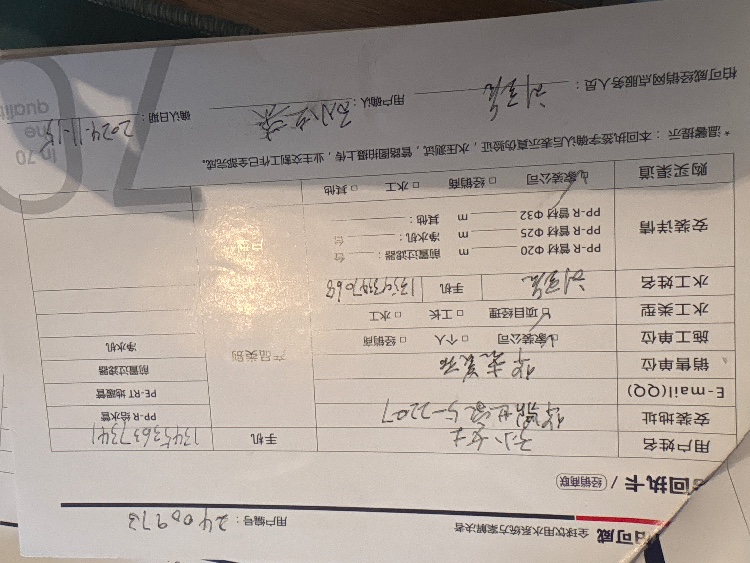 柏可威 全球饮用水系统方案解决者
用户编号：2400973
回执卡 / 经销商联
用户姓名 孙女士 手机 13453637341
安装地址 5-2207 PP-R 给水管
E-mail(QQ) PE-RT 地暖管
销售单位 前置过滤器
施工单位 ☑家装公司 □ 个人 □ 经销商 产品类别 净水机
水工类型 ☑项目经理 □ 工长 □ 水工
水工姓名 手机
安装详情 PP-R 管材 Φ20 m 前置过滤器： 台
PP-R 管材 Φ25 m 净水机： 台
PP-R 管材 Φ32 m 其他：
购买渠道 ☑家装公司 □ 经销商 □ 水工 □ 其他
*温馨提示：本回执签字确认后表示真伪验证，水压测试，管路图拍摄上传，业主交割工作已全部完成。
柏可威经销网点服务人员： 用户确认： 确认日期：2024.11.15
in 70
me
qualit